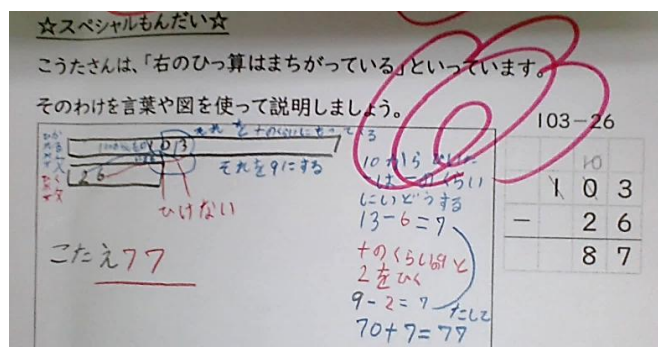 ☆スペシャルもんだい☆
こうたさんは、「右のひっ算はまちがっている」といっています。
そのわけを言葉や図を使って説明しましょう。
103-26
10
103
- 26
87
103
それを十のくらいにもってくる
それを9にする
26
ひけない
こたえ77
10から
一のくらい
にいどうする
13-6=7
十のくらいの9と
2をひく
9-2=7
たして
70+7=77